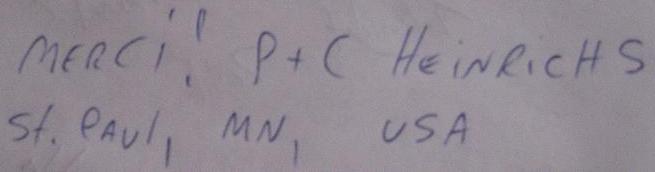 MERCi! P + C HEiNRiCHS
St. PAUl, MN, USA